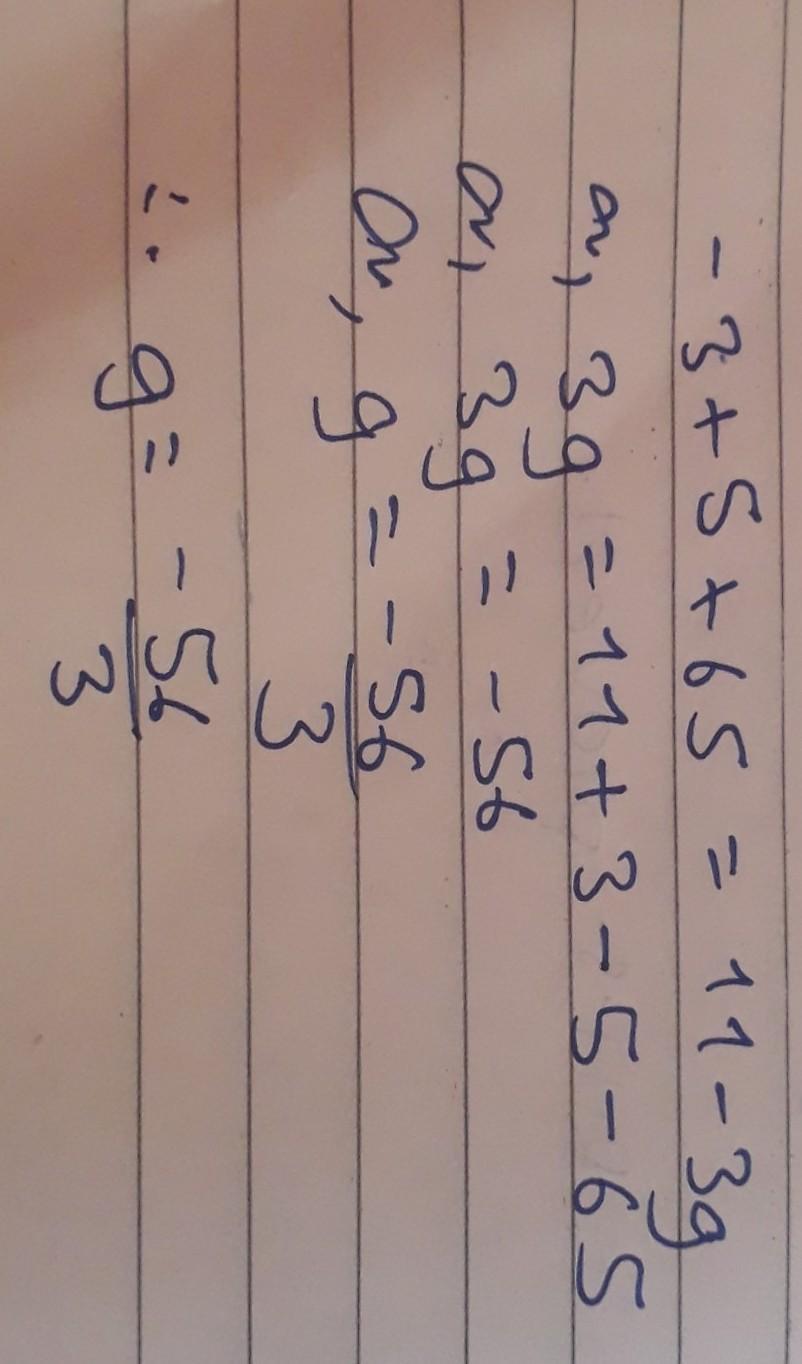 -3+5+65 = 11-3g
or, 3g = 11+3-5-65
or, 3g = -56
or, g = -56/3
∴ g = -56/3